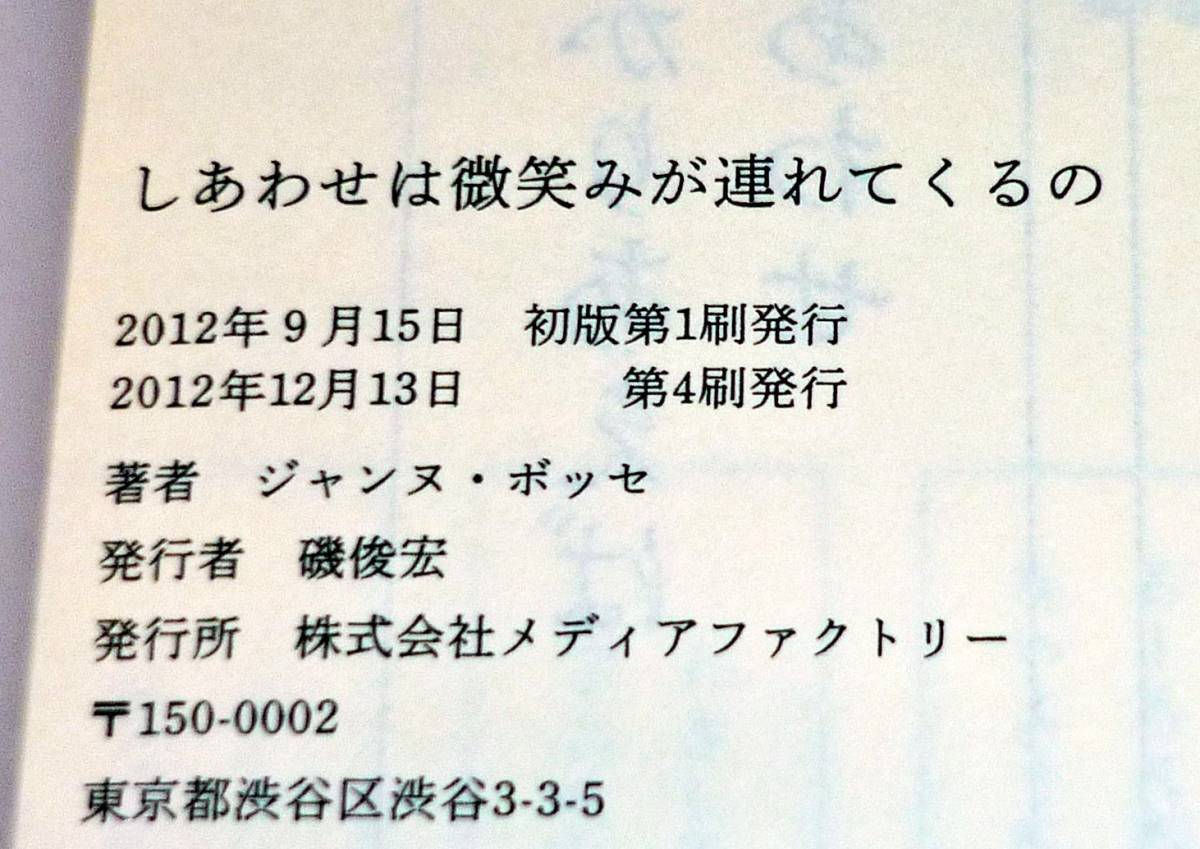 しあわせは微笑みが連れてくるの
2012年9月15日　初版第1刷発行
2012年12月13日　第4刷発行
著者　ジャンヌ・ボッセ
発行者　磯俊宏
発行所　株式会社メディアファクトリー
〒150-0002
東京都渋谷区渋谷3-3-5